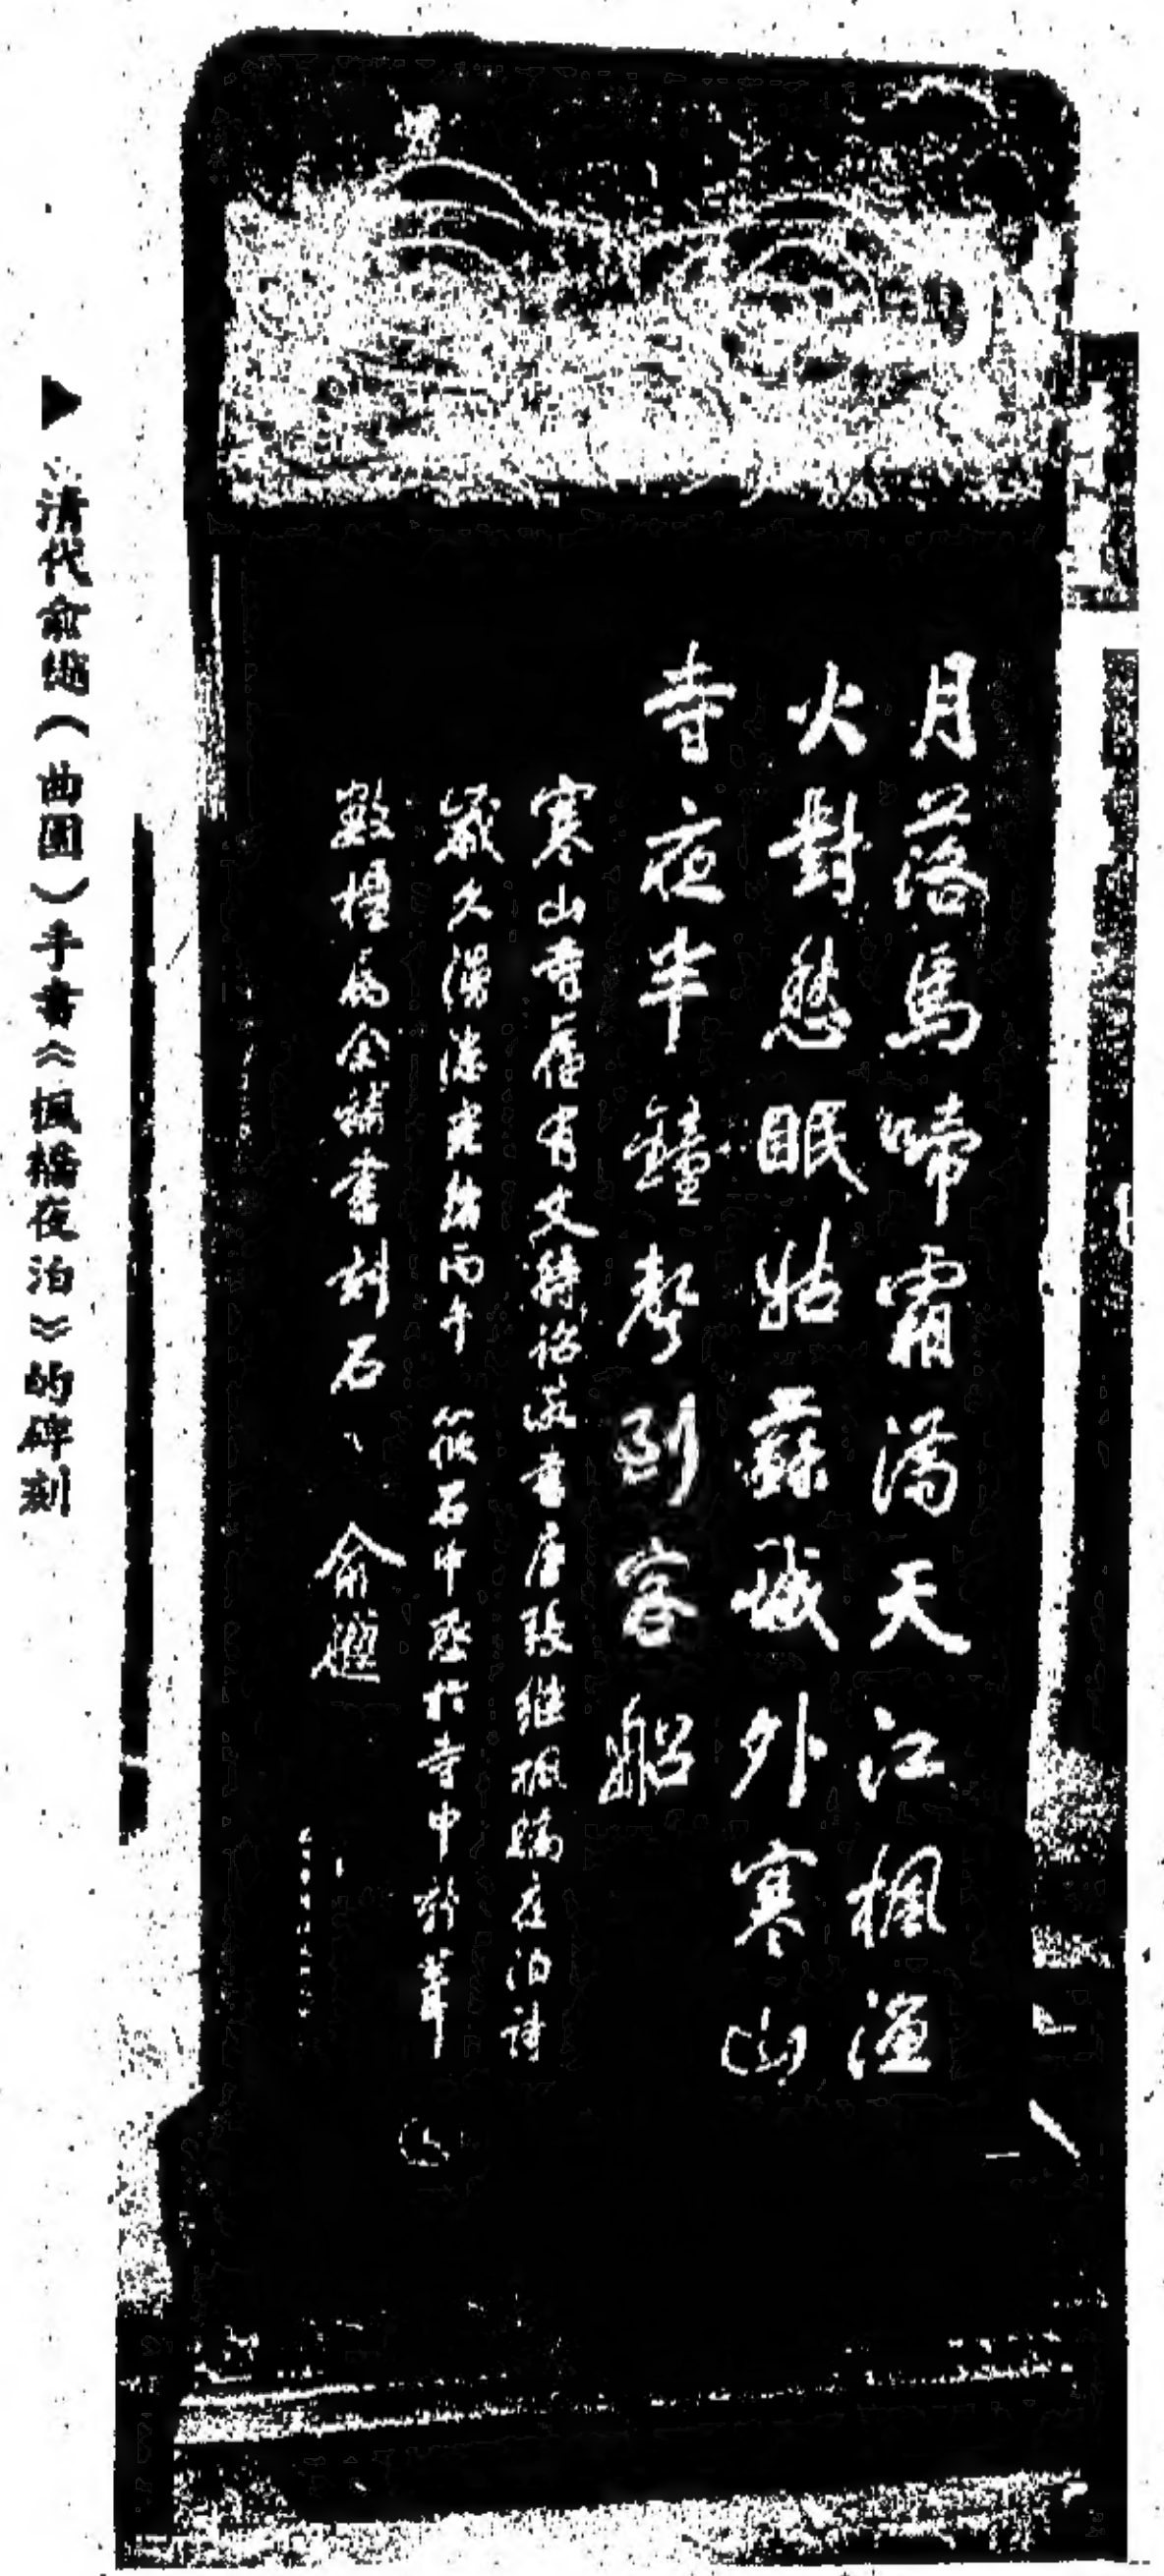 月落烏啼霜滿天江楓漁
火對愁眠姑蘇城外寒山
寺夜半鐘聲到客船
寒山寺舊有文待詔所書唐張繼楓橋夜泊詩
歲久漫漶光緒丙午 筱石中丞於寺中新葺
數楹屬余補書刻石 俞樾
清代俞樾(曲園)手書《楓橋夜泊》的碑刻